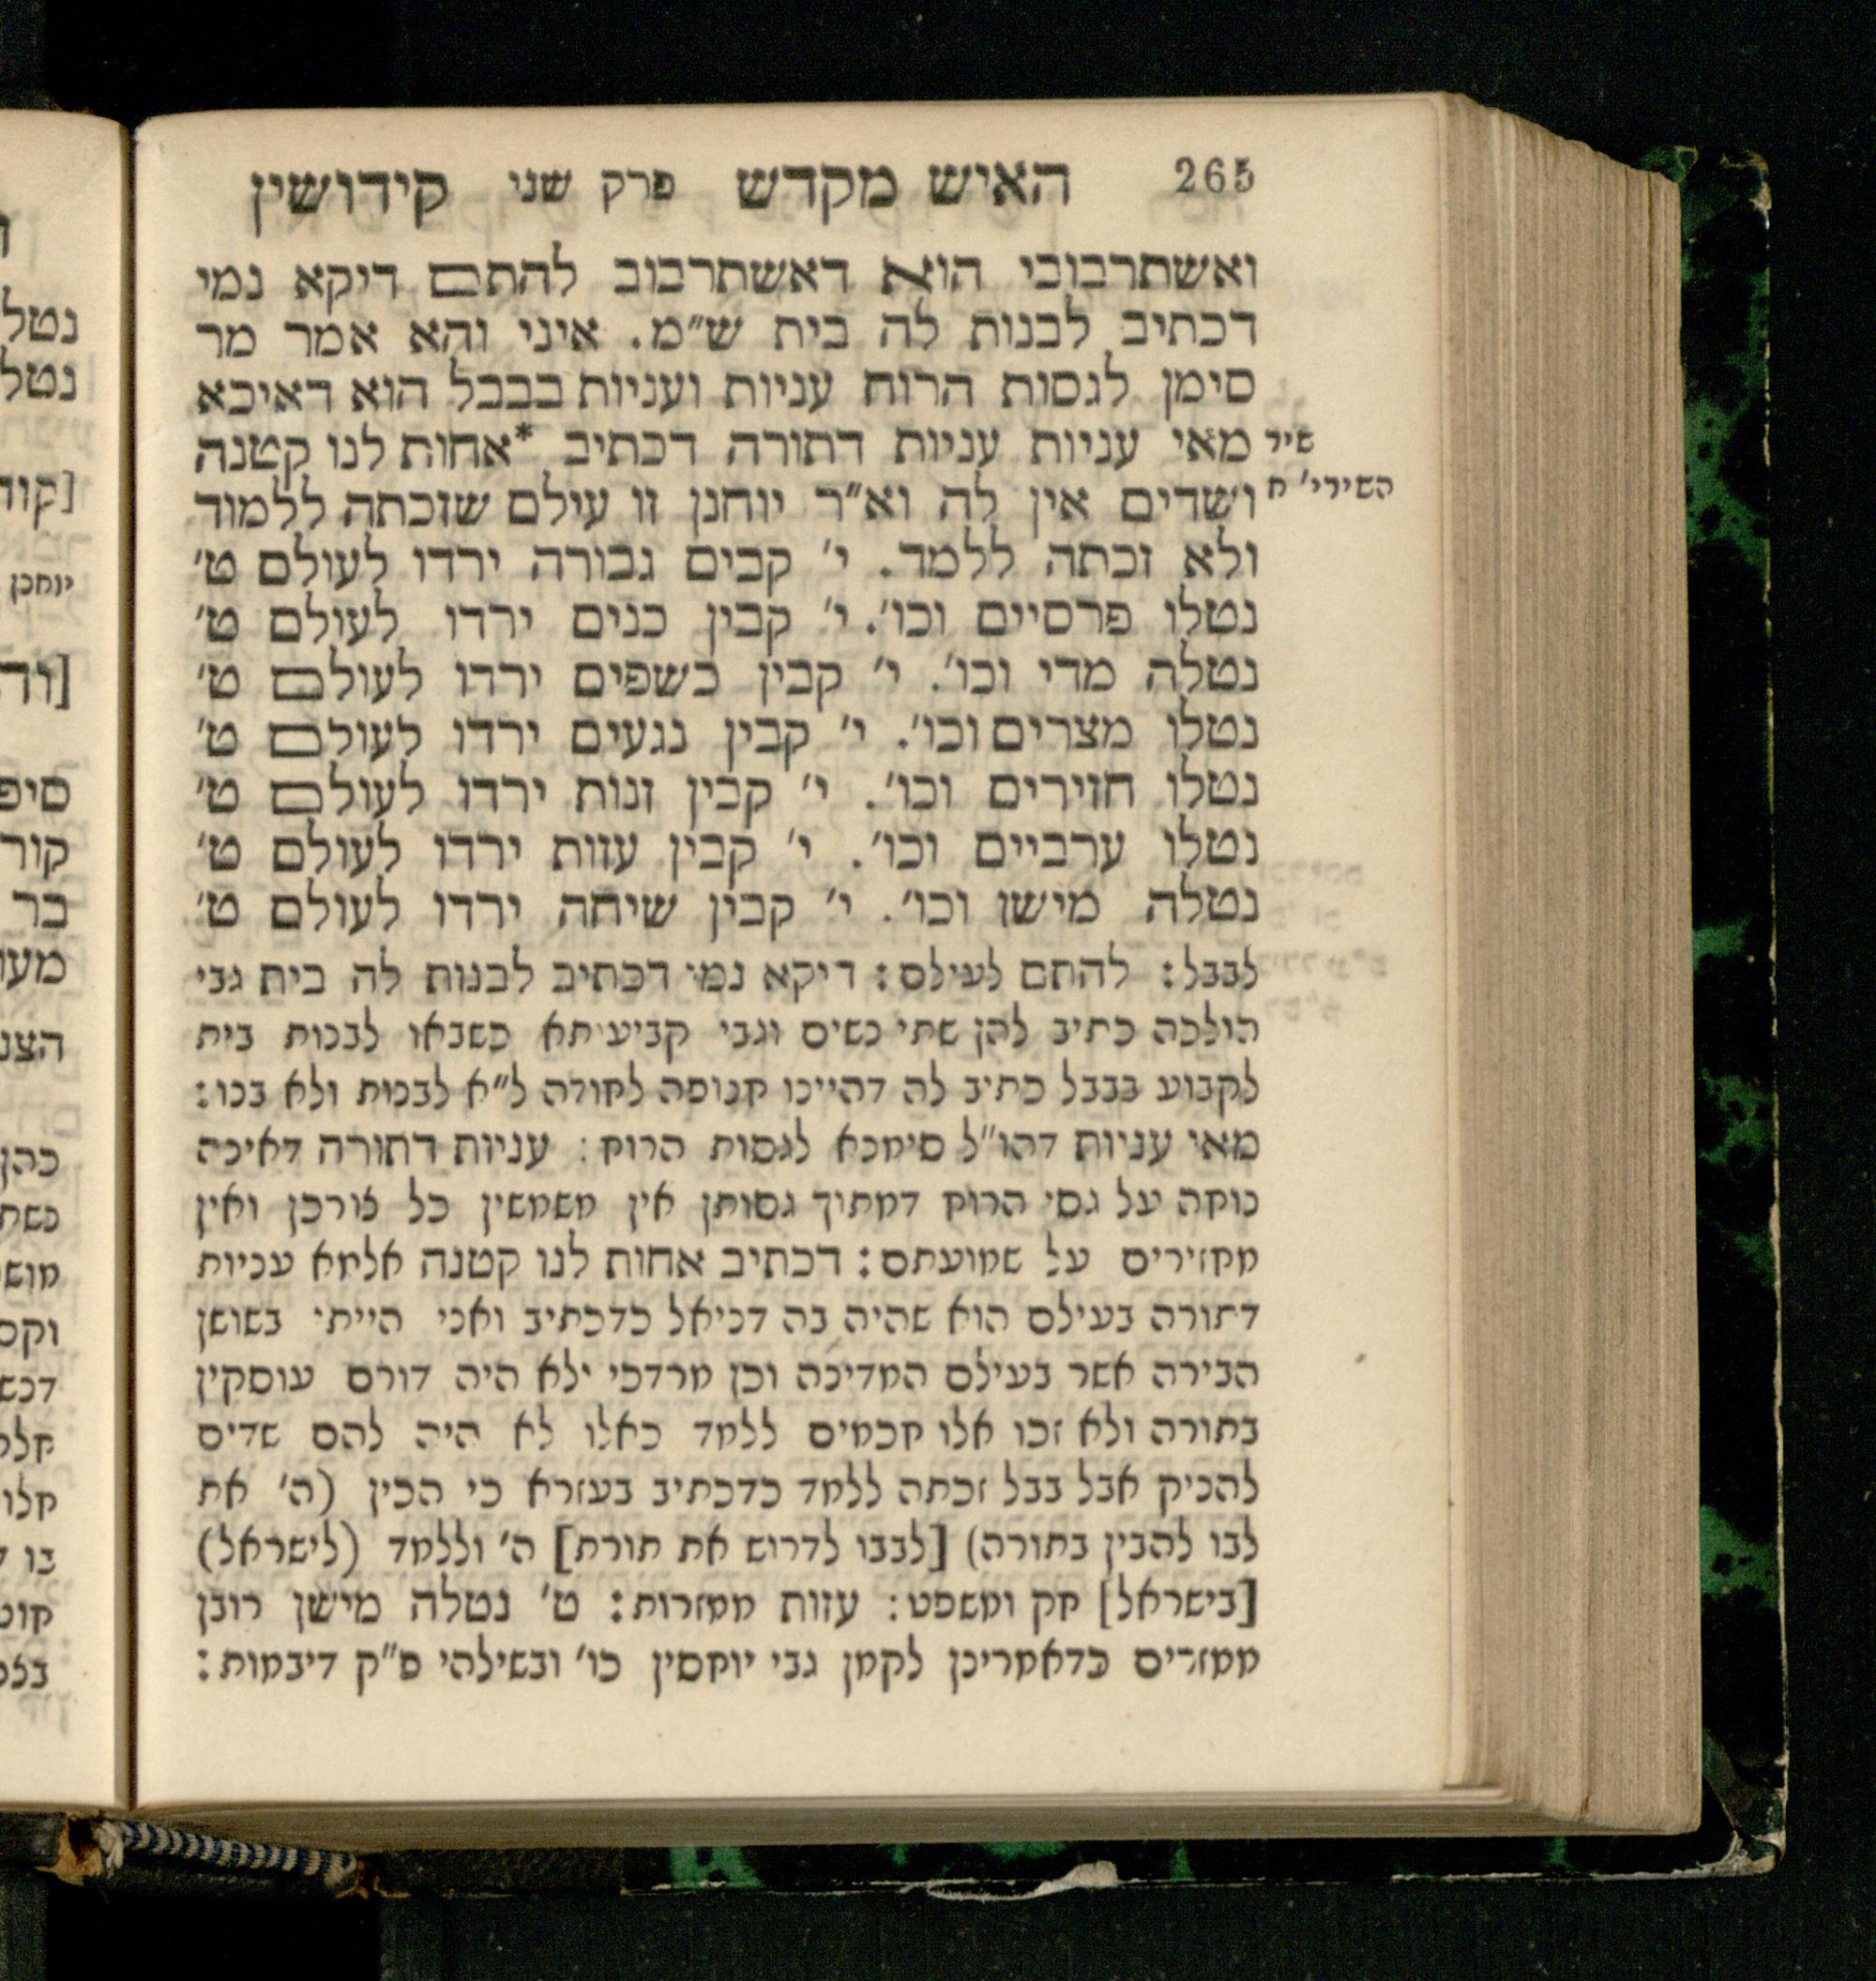 265 האיש מקדש פרק שני קידושין
ואשתרבובי הוא דאשתרבוב להתם דיקא נמי
דכתיב לבנות לה בית ש״מ. איני והא אמר מר
סימן לגסות הרוח עניות ועניות בבבל הוא דאיכא
מאי עניות עניות דתורה דכתיב *אחות לנו קטנה
ושדים אין לה וא״ר יוחנן זו עילם שזכתה ללמוד
ולא זכתה ללמד. י׳ קבים גבורה ירדו לעולם ט׳
נטלו פרסיים וכו׳. י׳ קבין כנים ירדו לעולם ט׳
נטלה מדי וכו׳. י׳ קבין כשפים ירדו לעולם ט׳
נטלו מצרים וכו׳. י׳ קבין נגעים ירדו לעולם ט׳
נטלו חזירים וכו׳. י׳ קבין זנות ירדו לעולם ט׳
נטלו ערביים וכו׳. י׳ קבין עזות ירדו לעולם ט׳
נטלה מישן וכו׳. י׳ קבין שיחה ירדו לעולם ט׳
שיר
השירי׳ ח
לבבל: להתם לעילם: דיקא נמי דכתיב לבנות לה בית גבי
הולכה כתיב להן שתי נשים וגבי קביעותא כשבאו לבנות בית
לקבוע בבבל כתיב לה דהיינו חנופה לחודה ל״א לבנות ולא בנו:
מאי עניות דהו״ל סימנא לגסות הרוח: עניות דתורה דאיכה
נוחה על גסי הרוח דמתוך גסותן אין משמשין כל צורכן ואין
מחזירים על שמועתם: דכתיב אחות לנו קטנה אלמא עניות
דתורה בעילם הוא שהיה בה דניאל כדכתיב ואני הייתי בשושן
הבירה אשר בעילם המדינה וכן מרדכי ולא היה דורם עוסקין
בתורה ולא זכו אלו חכמים ללמד כאלו לא היה להם שדים
להניק אבל בבל זכתה ללמד כדכתיב בעזרא כי הכין (ה׳ את
לבו להבין בתורה) [לבבו לדרוש את תורת] ה׳ וללמד (לישראל)
[בישראל] חק ומשפט: עזות ממזרות: ט׳ נטלה מישן רובן
ממזרים כדאמרינן לקמן גבי יוחסין כו׳ ובשילהי פ״ק דיבמות:
נטל
נטל
יוחנן
סיפ
קור
בר
מעו
הצנ
כהן
מוש
וקס
דכש
חלו
בו